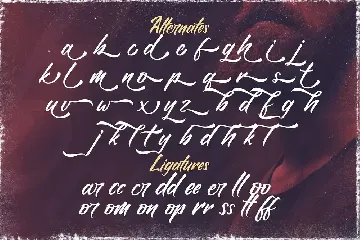 Alternates
a b c d e f g h i j
k l m n o p q r s t
u v w x y z b d f g h
j k l t y b d h k l
Ligatures
ar cc cr dd ee er ll oo
or om on op rr ss tt ff